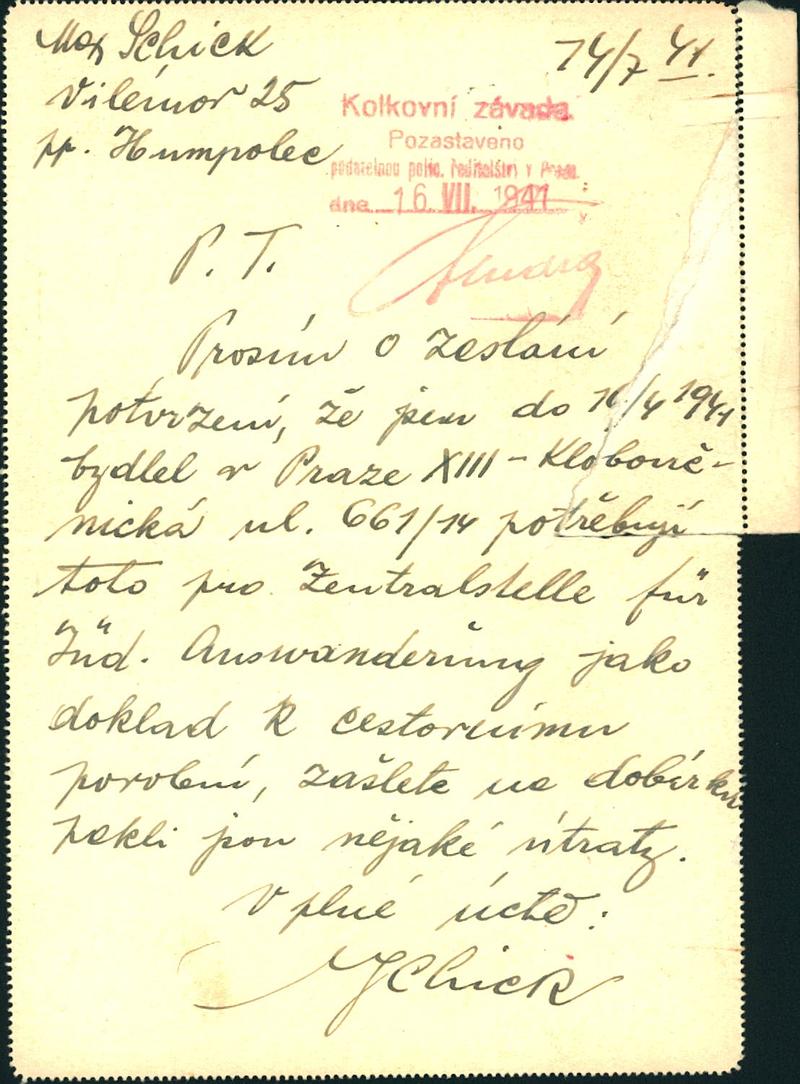 Max Schick
14/7 41.
Vilémov 25
pp. Humpolec
Kolkovní závada
Pozastaveno
podatelnou polic. ředitelství v Praze.
dne 16. VII. 1941
P. T.
Prosím o zeslání
potvrzení, že jsem do 10/4 1941
bydlel v Praze XIII - Klobouč-
nická ul. 661/14 potřebuji
toto pro Zentralstelle für
Jüd. Auswanderung jako
doklad k cestovnímu
povolení, zašlete na dobírku
jsou nějaké útraty.
V plné úctě:
MSchick